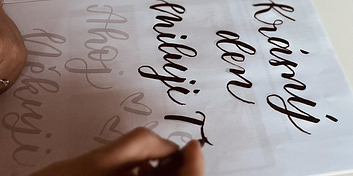 Krásný
den
Miluji T
Ahoj
Děkuji